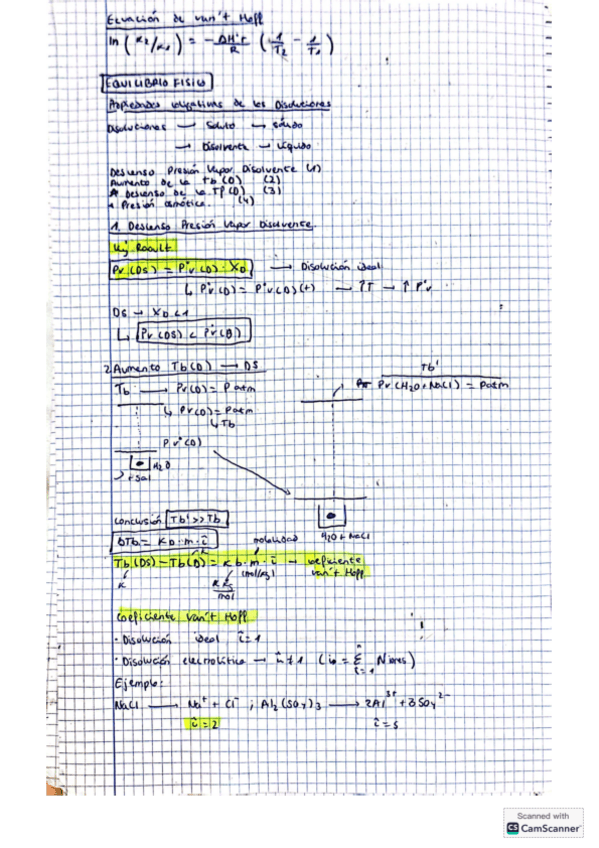 Ecuación de van't Hoff
ln (K2/K1) = -ΔHºr/R (1/T2 - 1/T1)
EQUILIBRIO FISICO
Propiedades coligativas de las Disoluciones
Disoluciones → Soluto → sólido
→ Disolvente → Líquido
Descenso Presión Vapor Disolvente (1)
Aumento de la Tb (D) (2)
* Descenso de la Tf (D) (3)
* Presión osmótica. (4)
1. Descenso Presión Vapor Disolvente.
Ley Raoult
Pv (DS) = Pºv (D) · XD → Disolución ideal
↳ Pºv (D) = Pºv (D) (T) → ↑T → ↑Pºv
DS → XD < 1
↳ Pv (DS) < Pºv (D)
2. Aumento Tb (D) → DS
Tb → Pv (D) = Patm
↳ Pv (D) = Patm
↳ Tb
Pvº (D)
H2O
+ sal
Tb'
Pv (H2O + NaCl) = Patm
H2O + NaCl
Conclusión Tb' >> Tb
ΔTb = KD · m · i
molalidad
Tb (DS) - Tb (D) = Kb · m · i → coeficiente van't Hoff
K
K
(mol/kg)
K kg/mol
Coeficiente Van't Hoff
· Disolución ideal i = 1
· Disolución electrolítica → i ≠ 1 (i = Σ Niones)
n
i = 1
Ejemplo:
NaCl → Na+ + Cl- ; Al2(SO4)3 → 2Al3+ + 3SO4 2-
i = 2
i = 5
Scanned with
CS CamScanner